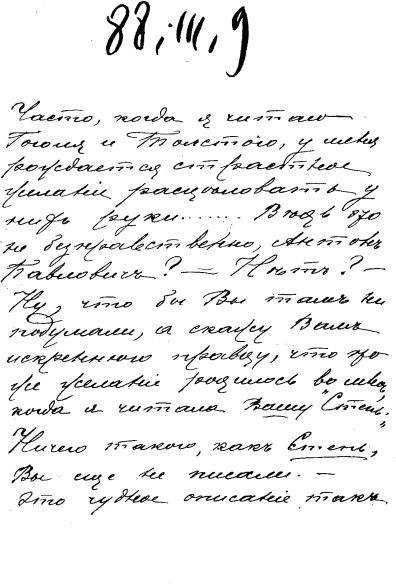 88, III, 9
Часто, когда я читаю
Гоголя и Толстого, у меня
рождается страстное
желанiе расцѣловать у
нихъ руки...... Вѣдь это
не безнравственно, Антонъ
Павловичъ? — Нѣтъ? —
Ну, что бы Вы тамъ ни
подумали, а скажу Вамъ
искреннюю правду, что это
же желанiе родилось во мнѣ,
когда я читала Вашу "Степь."
Ничего такого, какъ Степь,
Вы еще не писали. —
Это чудное описанiе такъ